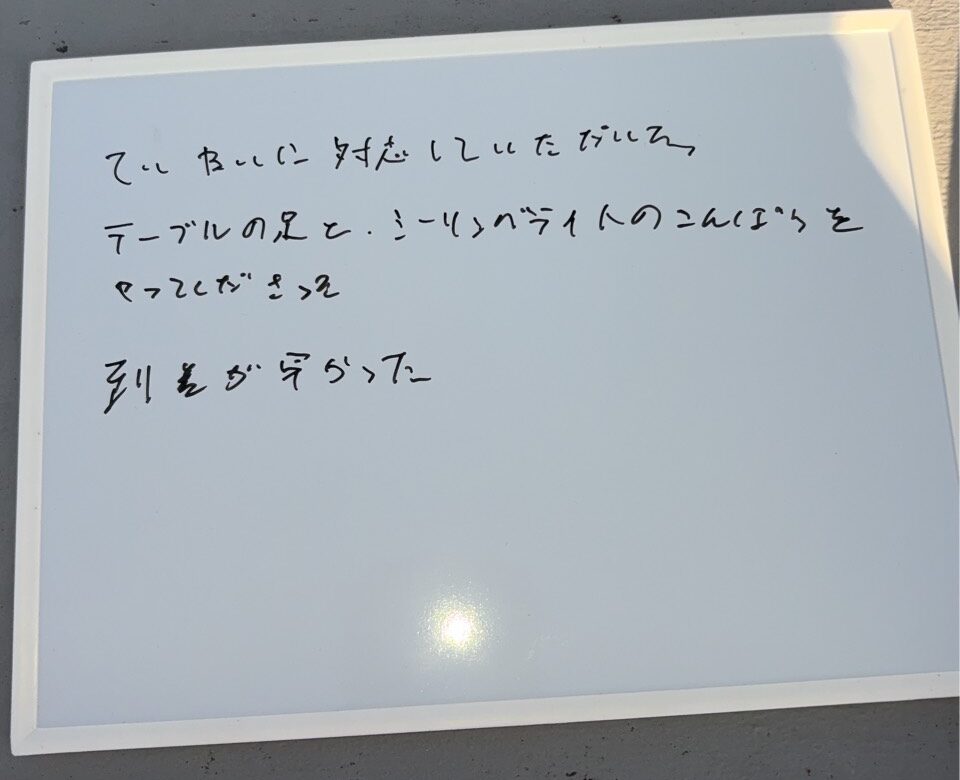 ていねいに対応していただいた
テーブルの足と、シーリングライトのこんぽうを
やってくださった
到着が早かった